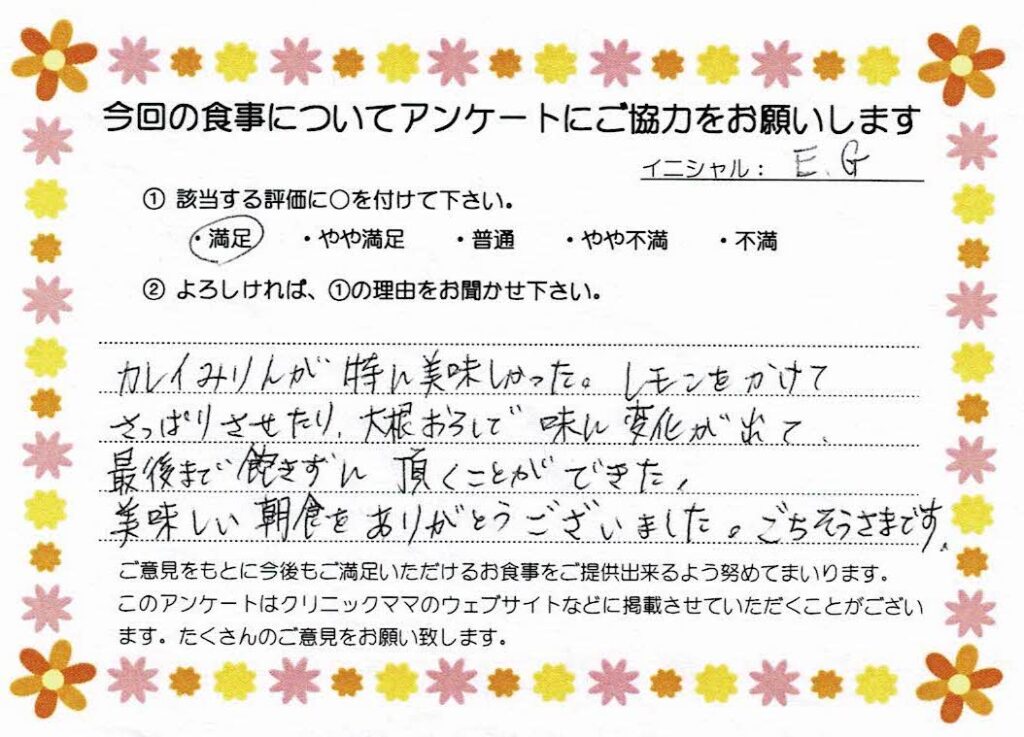 今回の食事についてアンケートにご協力をお願いします
イニシャル： E.G
① 該当する評価に○を付けて下さい。
・満足 ・やや満足 ・普通 ・やや不満 ・不満
② よろしければ、①の理由をお聞かせ下さい。
カレイみりんが特に美味しかった。レモンをかけて
さっぱりさせたり、大根おろしで味に変化が出て、
最後まで飽きずに頂くことができた。
美味しい朝食をありがとうございました。ごちそうさまです。
ご意見をもとに今後もご満足いただけるお食事をご提供出来るよう努めてまいります。
このアンケートはクリニックママのウェブサイトなどに掲載させていただくことがござい
ます。たくさんのご意見をお願い致します。